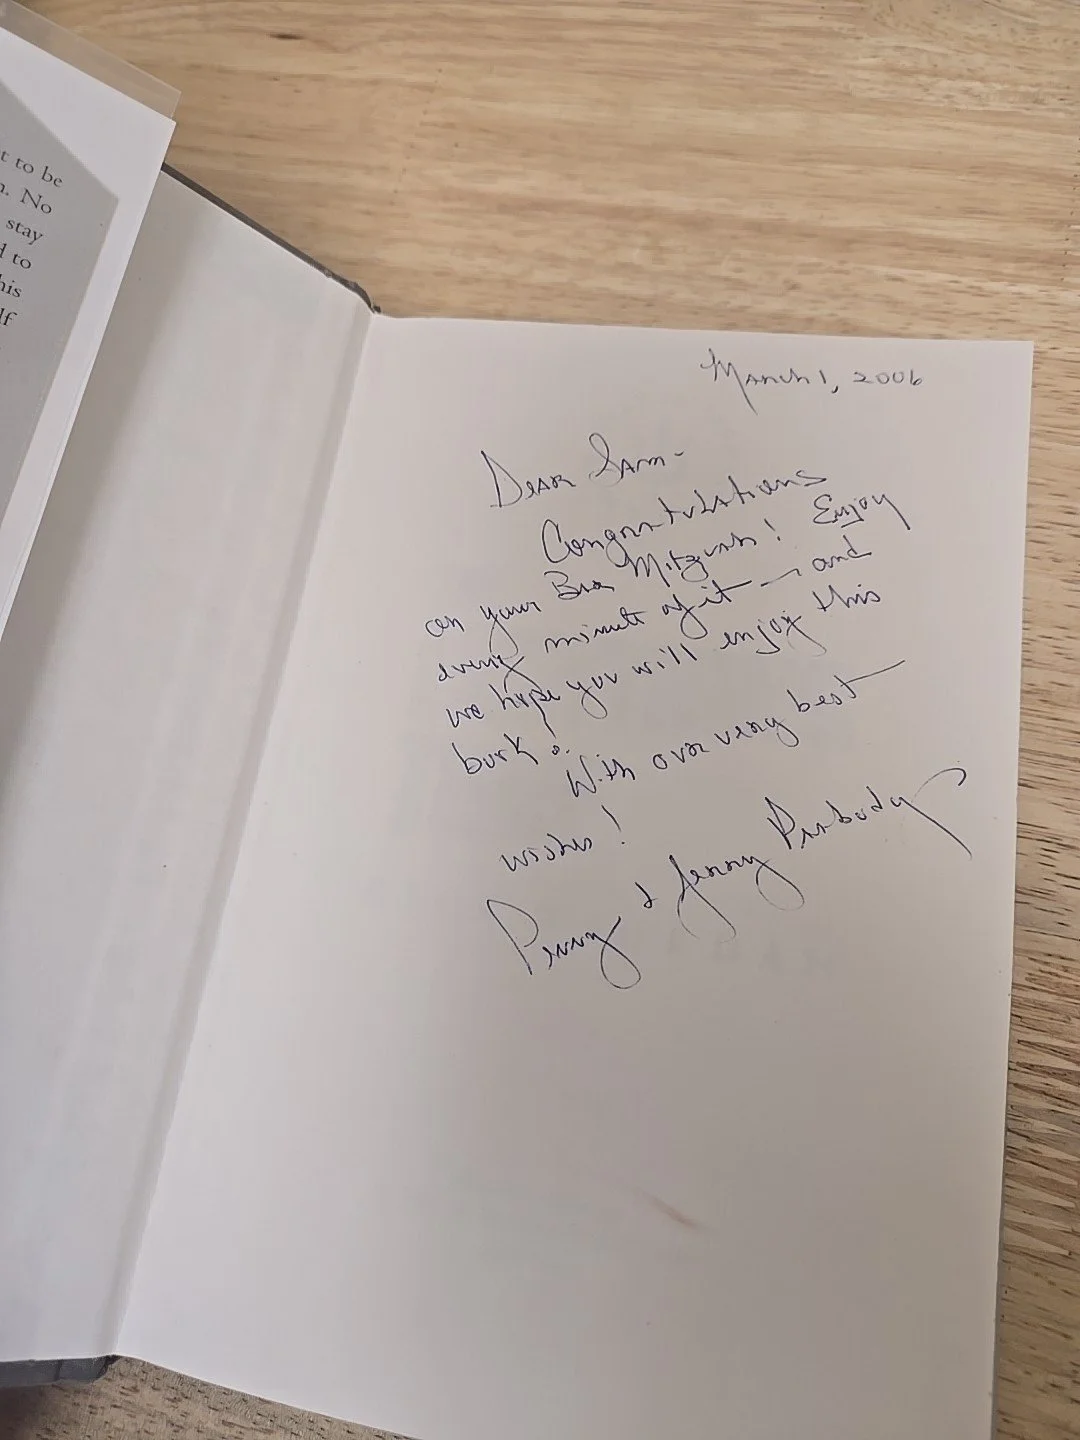 t to be
n. No
stay
d to
his
lf
March 1, 2006
Dear Sam-
Congratulations
on your Bar Mitzvah! Enjoy
every minute of it — and
we hope you will enjoy this
book!
With our very best
wishes!
Penny & Jenny Peabody